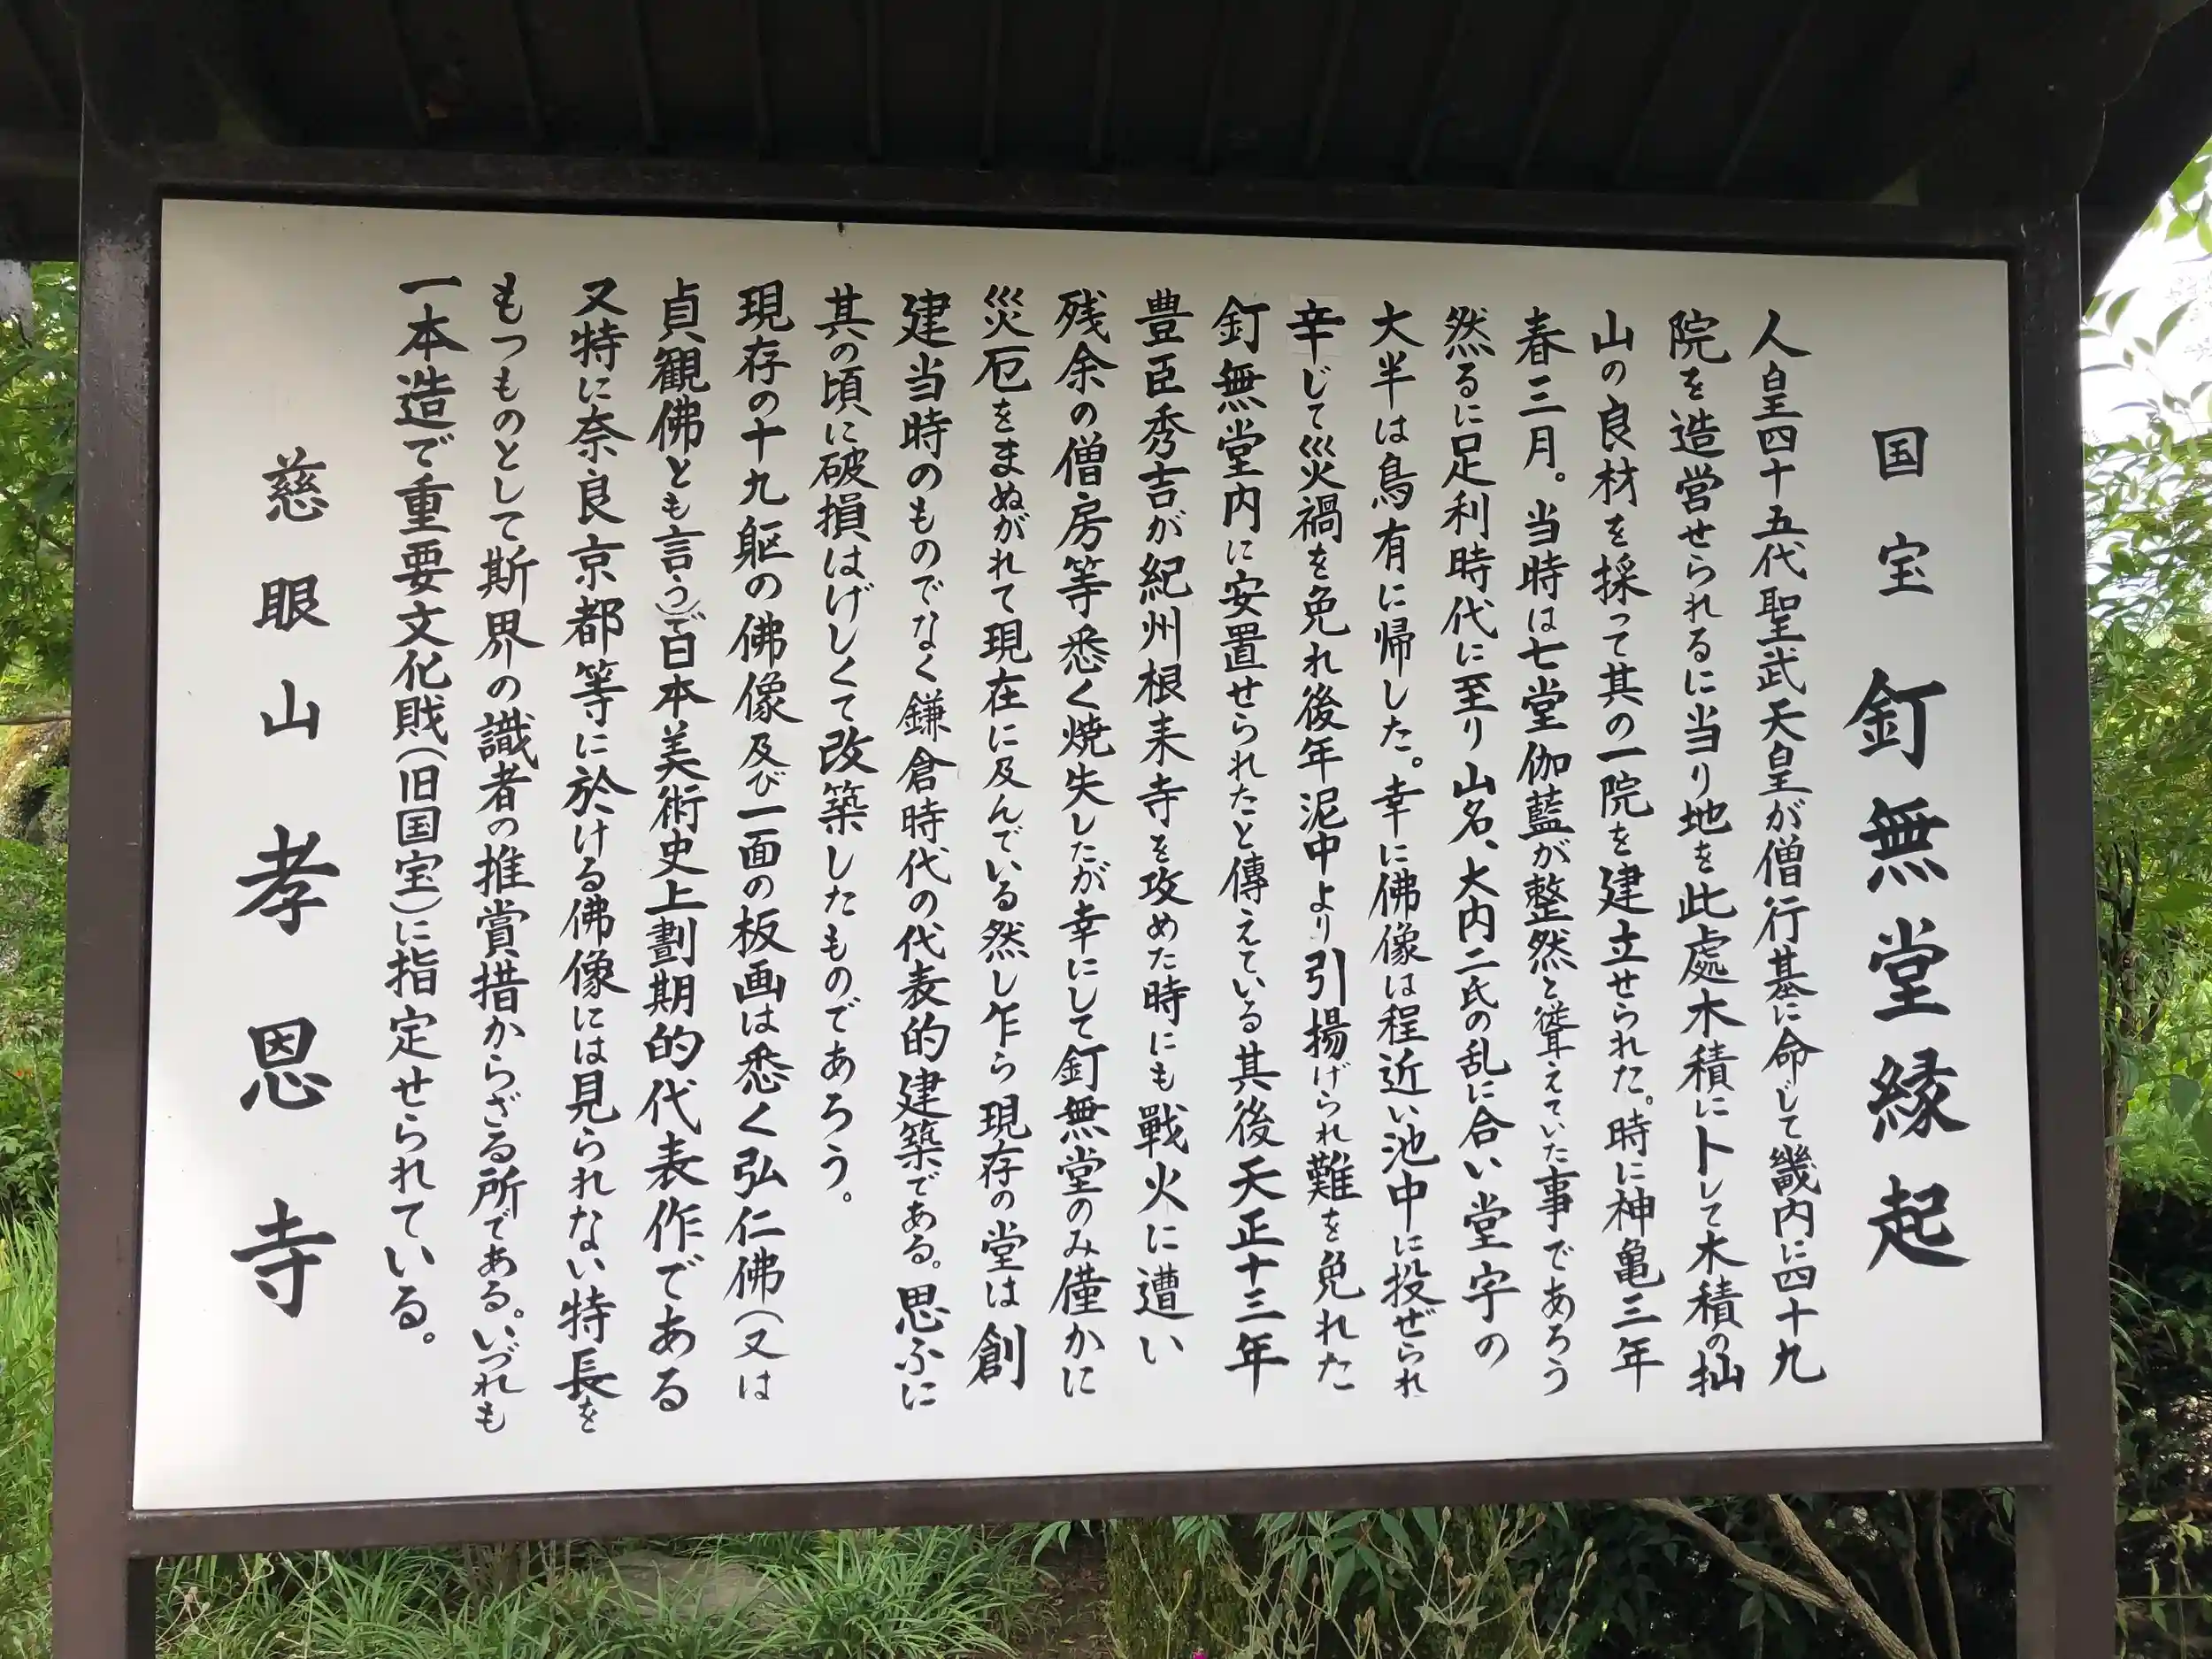 国宝 釘無堂縁起
人皇四十五代聖武天皇が僧行基に命じて畿内に四十九
院を造営せられるに当り地を此處木積に卜して木積の拙
山の良材を採って其の一院を建立せられた。時に神亀三年
春三月。当時は七堂伽藍が整然と聳えていた事であろう
然るに足利時代に至り山名、大内二氏の乱に合い堂宇の
大半は烏有に帰した。幸に佛像は程近い池中に投ぜられ
辛じて災禍を免れ後年泥中より引揚げられ難を免れた
釘無堂内に安置せられたと傳えている其後天正十三年
豊臣秀吉が紀州根来寺を攻めた時にも戰火に遭い
残余の僧房等悉く焼失したが幸にして釘無堂のみ僅かに
災厄をまぬがれて現在に及んでいる然し乍ら現存の堂は創
建当時のものでなく鎌倉時代の代表的建築である。思ふに
其の頃に破損はげしくて改築したものであろう。
現存の十九躯の佛像及び一面の板画は悉く弘仁佛(又は
貞観佛とも言う)で日本美術史上劃期的代表作である
又特に奈良京都等に於ける佛像には見られない特長を
もつものとして斯界の識者の推賞措からざる所である。いづれも
一本造で重要文化財(旧国宝)に指定せられている。
慈眼山 孝恩寺